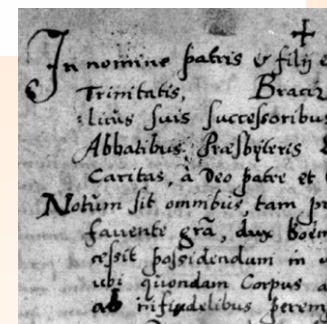 In nomine patris & filij
Trinitatis,
licus suis successoribus
Abbatibus, Præsbyteris
Caritas, à Deo patre et
Notum sit omnibus, tam
favente grã, dux
cessit possidendum in
ubi quondam Corpus a
ab infidelibus perem